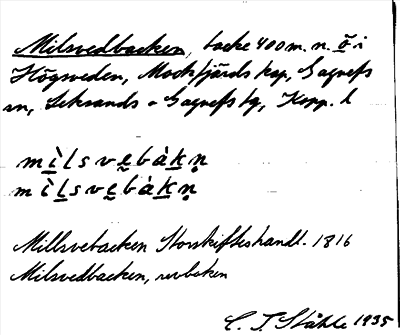 Milsvedbacken, backe 400 m. n. ö i
Högsveden, Mockfjärds kap, Gagnefs
sn, Leksands o Gagnefs tg, Kopp. l
mìlsvebàkn̥
mìlsvebàkn̥
Millsvebacken Storskifteshandl. 1816
Milsvedbacken, urboken
C. I. Ståhle 1935